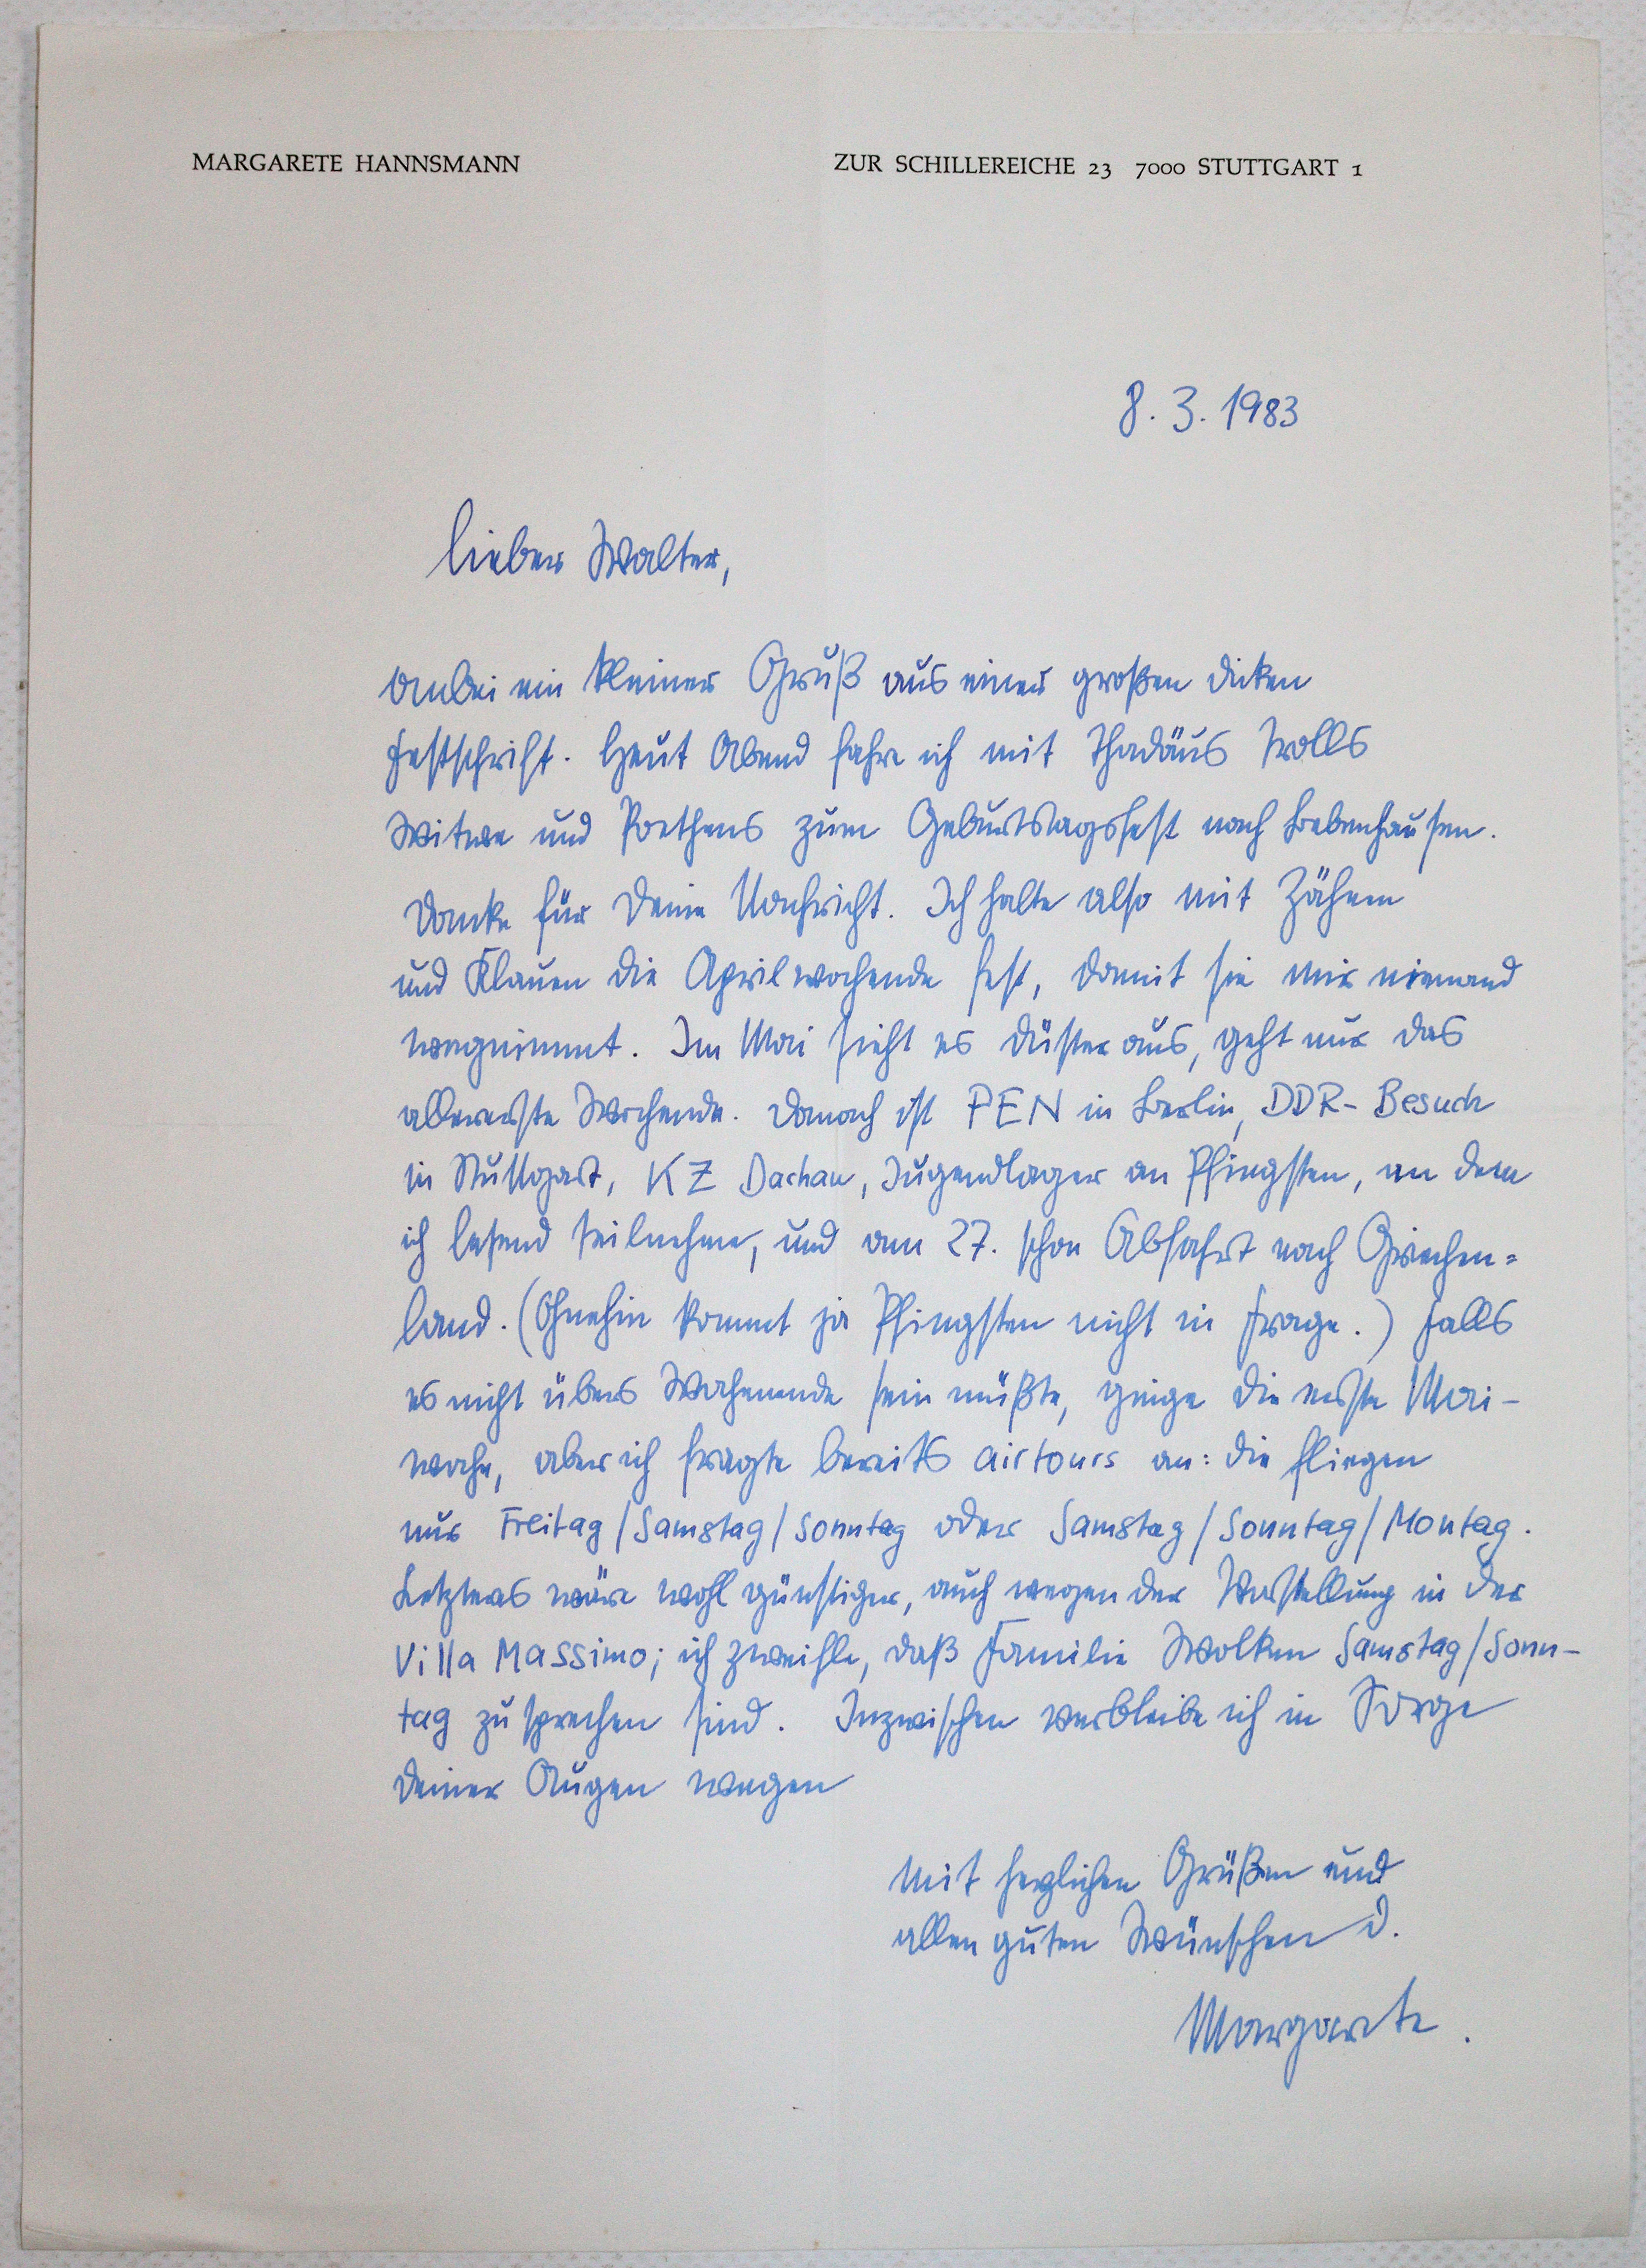 MARGARETE HANNSMANN ZUR SCHILLEREICHE 23 7000 STUTTGART 1
8.3.1983
lieber Walter,
anbei ein kleiner Gruß aus einer großen dicken
Festschrift. Heut Abend fahre ich mit Thadäus Trolls
Witwe und Poethens zum Geburtstagsfest nach Bebenhausen.
Danke für Deine Nachricht. Ich halte also mit Zähnen
und Klauen die Aprilwochende fest, damit sie mir niemand
wegnimmt. Im Mai sieht es düster aus, geht nur das
allererste Wochende. Danach ist PEN in Berlin, DDR-Besuch
in Stuttgart, KZ Dachau, Jugendlager an Pfingsten, an dem
ich lesend teilnehme, und am 27. schon Abfahrt nach Griechen=
land. (Ohnehin kommt ja Pfingsten nicht in Frage.) Falls
es nicht übers Wochenende sein müßte, ginge die erste Mai-
woche, aber ich fragte bereits airtours an: die fliegen
nur Freitag/Samstag/Sonntag oder Samstag/Sonntag/Montag.
Letzteres wäre wohl günstiger, auch wegen der Vorstellung in der
Villa Massimo; ich zweifle, daß Familie Wolken Samstag/Sonn-
tag zu sprechen sind. Inzwischen verbleibe ich in Sorge
Deiner Augen wegen
mit herzlichen Grüßen und
allen guten Wünschen D.
Margarete.